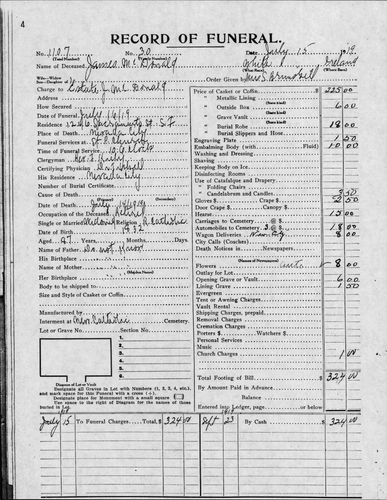 4
RECORD OF FUNERAL.
No. 1107 No. 30 Date July 15 19
(Total Number) (Yearly Number)
Name of Deceased James McDonald White Ireland
Charge to Estate J. McDonald Order Given by Mrs
Address
Date of Funeral July 16/19
Residence Sacramento St. S.F.
Place of Death Nevada City
Funeral Services at
Time of Funeral Service 10 o'clock
Clergyman Rev.
Certifying Physician
His Residence Nevada City
Number of Burial Certificate
Cause of Death
Date of Death July 14/1919
Occupation of the Deceased Retired
Single or Married Religion R. Catholic
Date of Birth 1832
Aged 87 Years, Months, Days.
Name of Father Do not Know
His Birthplace
Name of Mother
(Maiden Name)
Her Birthplace
Body to be shipped to
Size and Style of Casket or Coffin
Manufactured by
Interment at New Catholic Cemetery.
Lot or Grave No. Section No.
1.
2.
3.
4.
5.
6.
Diagram of Lot or Vault
Designate all Graves in Lot with Numbers (1, 2, 3, 4, etc.), and mark space for this Funeral with a cross (+).
Designate place for Monument with a small square
Use space to the right of Diagram for the names of those buried in Lot.
Price of Casket or Coffin $ 225 00
" Metallic Lining
" Outside Box 6 00
" Grave Vault
" Burial Robe 18 00
" Burial Slippers and Hose
Engraving Plate 1 50
Embalming Body (with Fluid) 10 00
Washing and Dressing
Shaving
Keeping Body on Ice
Disinfecting Rooms
Use of Catafalque and Drapery
" Folding Chairs
" Candelabrum and Candles 3 50
Gloves $ Crape $ 2 50
Door Crape $ Canopy $
Hearse 15 00
Carriages to Cemetery @ $
Automobiles to Cemetery 3 @ $ 18 00
Wagon Deliveries 8 00
City Calls (Coaches)
Death Notices in Newspapers
(Names of Newspapers)
Flowers 8 00
Outlay for Lot
Opening Grave 6 00
Lining Grave 1 50
Evergreen
Tent or Awning Charges
Vault Rental
Shipping Charges, prepaid
Removal Charges
Cremation Charges
Porters $ Watchers $
Personal Services
Music
Church Charges 1 00
Total Footing of Bill $ 324 00
By Amount Paid in Advance
Balance $
Entered into Ledger, page or below
July 15 To Funeral Charges, Total $ 324 00 Sept 23 By Cash $ 324 00